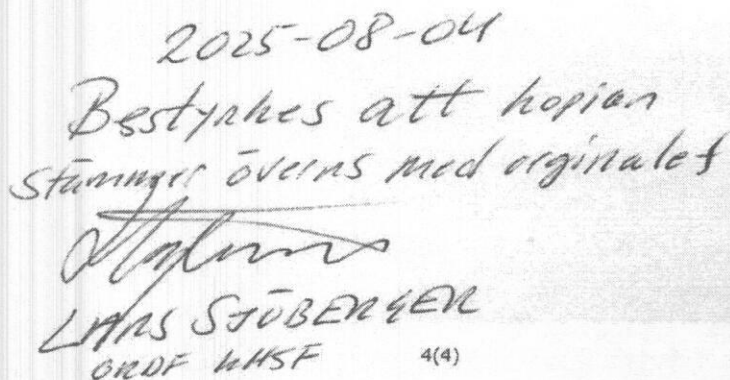 2025-08-04
Bestyrkes att kopian
Stämmer överens med orginalet
LARS SJÖBERGER
ORDF KHSF
4(4)